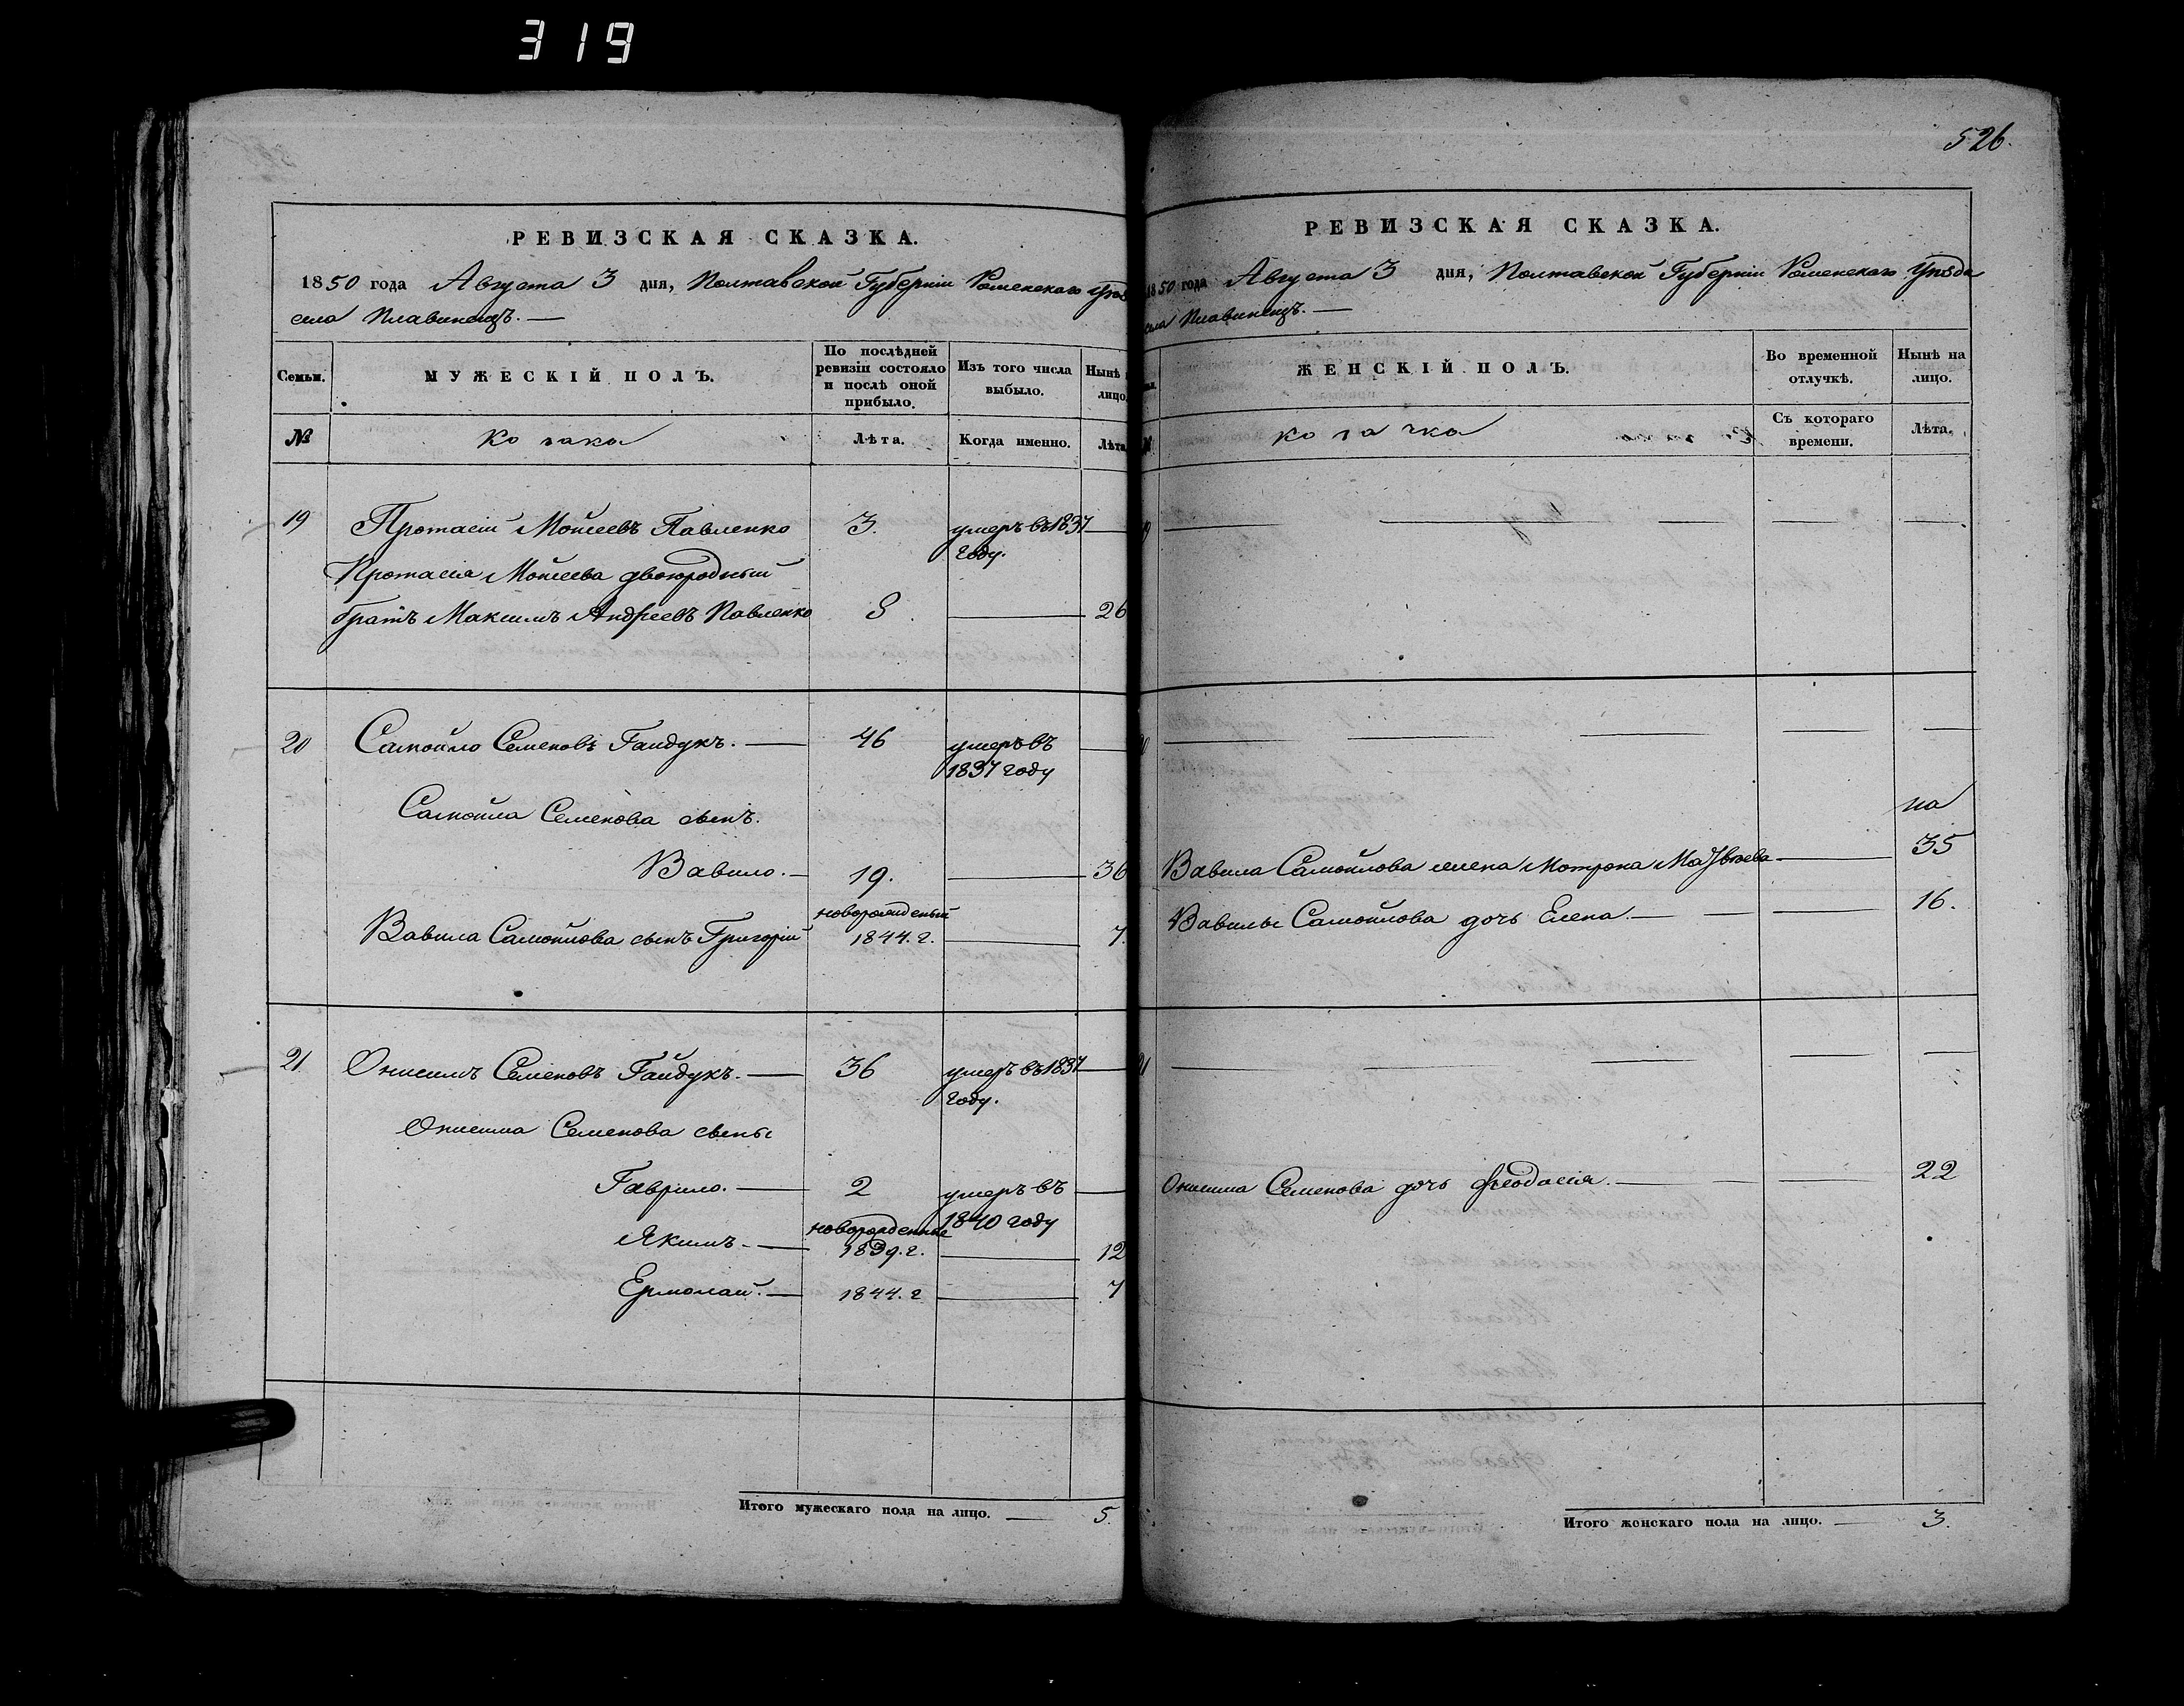 319
526.
РЕВИЗСКАЯ СКАЗКА.
1850 года Августа 3 дня, Полтавской Губерніи Роменскаго Уѣзда
села Плавинещъ. —
Семьи. МУЖЕСКІЙ ПОЛЪ. По послѣдней ревизіи состояло и послѣ оной прибыло. Изъ того числа выбыло. Нынѣ на лицо.
№ Козака Лѣта. Когда именно. Лѣта
19 Протасій Мойсеевъ Павленко 3. умеръ въ 1837 году. —
Протасія Мойсеева двоюродный
братъ Максимъ Андреевъ Павленко 8 — 26
20 Самойло Семеновъ Гайдукъ. — 46 умеръ въ 1837 году —
Самойла Семенова сынъ.
Вавило. — 19. — 36
Вавила Самойлова сынъ Григорій новорожденый 1844. г. — 7.
21 Онисимъ Семеновъ Гайдукъ. — 36 умеръ въ 1837 году. —
Онисима Семенова сыны
Гаврило. — 2 умеръ въ 1840 году —
Якимъ. — новорожденные 1839. г. — 12
Ермолай. — 1844. г — 7
Итого мужескаго пола на лицо. — 5.
РЕВИЗСКАЯ СКАЗКА.
1850 года Августа 3 дня, Полтавской Губерніи Роменскаго Уѣзда
села Плавинещъ. —
ЖЕНСКІЙ ПОЛЪ. Во временной отлучкѣ. Нынѣ на лицо.
№ Козачка Съ котораго времени. Лѣта.
19 — — — — —
20 — — — — —
на
Вавила Самойлова жена Мотрона Матвѣева — — 35
Вавилы Самойлова дочь Елена. — — — 16.
21 — — — — —
Онисима Семенова дочь Феодосія. — — 22
Итого женскаго пола на лицо. — 3.